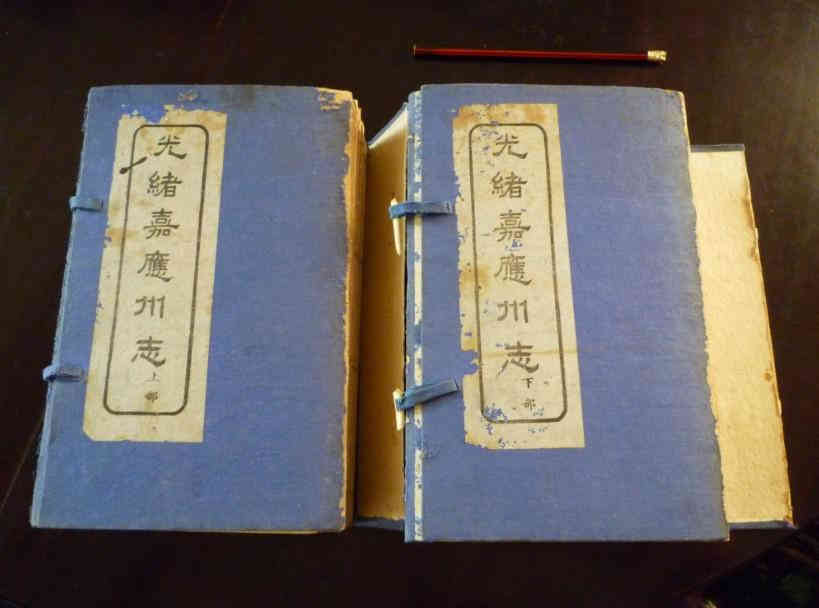 光緒嘉應州志
上部
光緒嘉應州志
下部